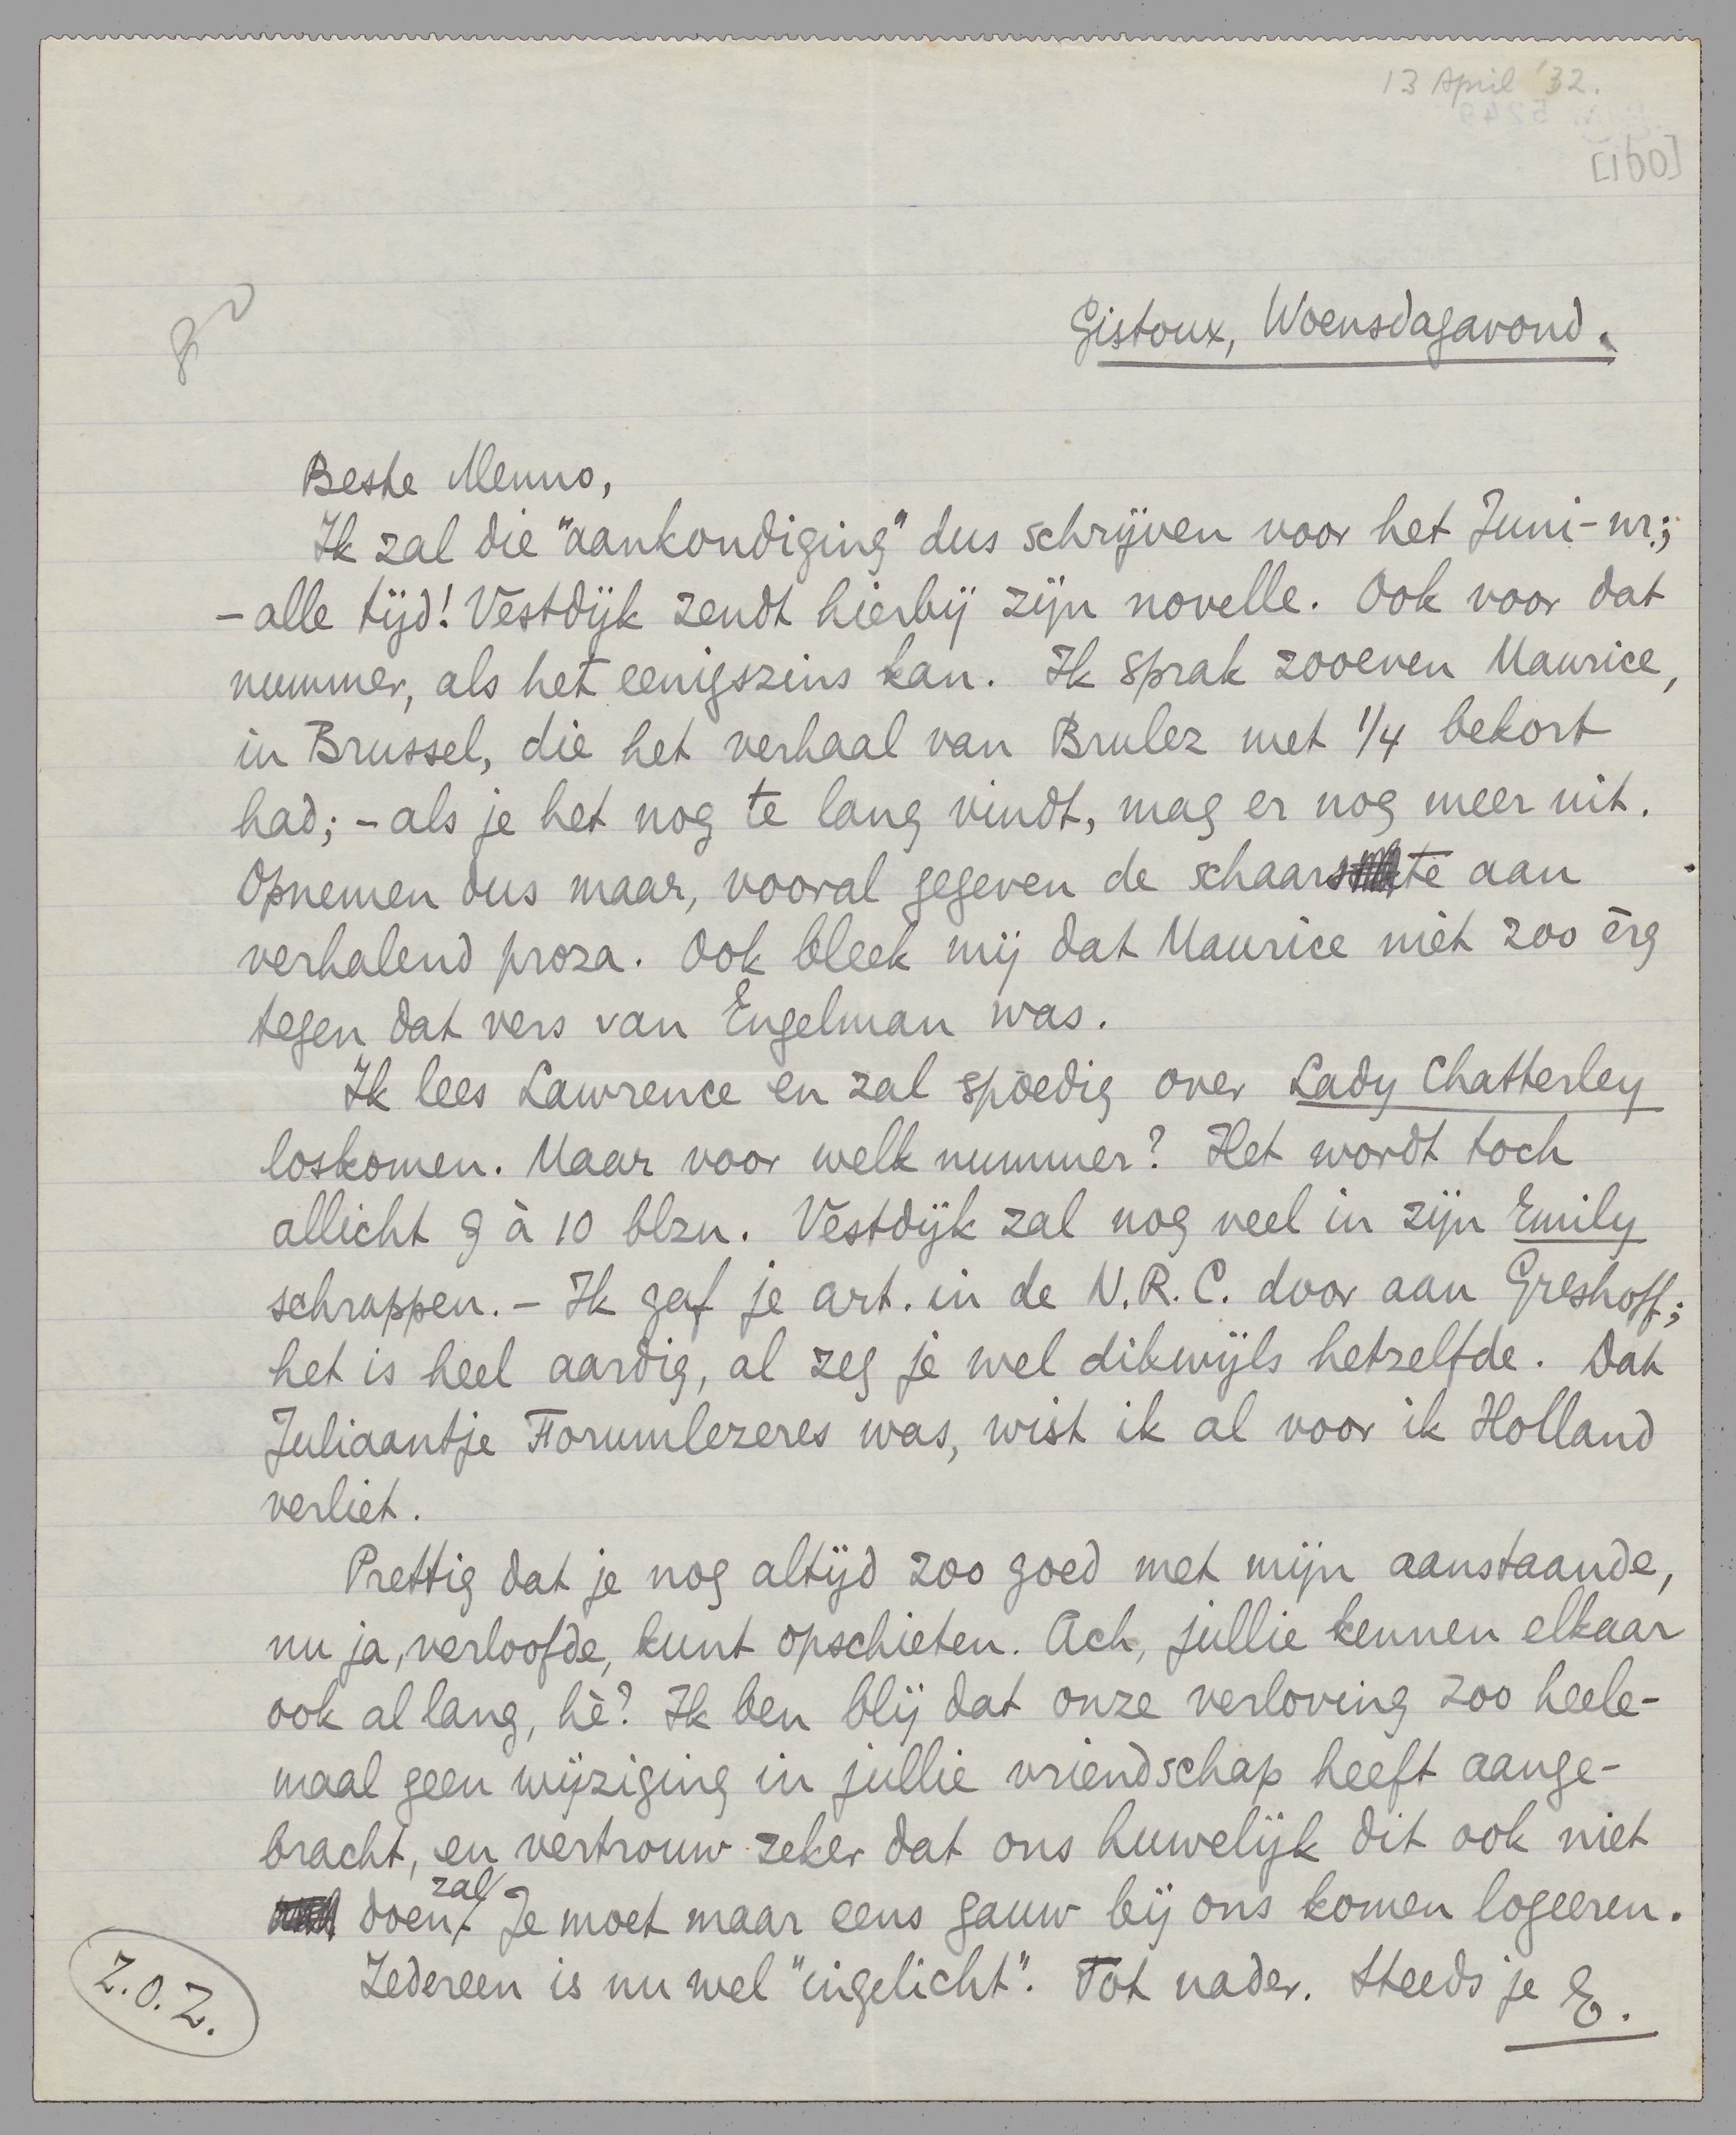 13 April '32.
[160]
Gistoux, Woensdagavond.
Beste Menno,
Ik zal die "aankondiging" dus schrijven voor het Juni-nr.;
- alle tijd! Vestdijk zendt hierbij zijn novelle. Ook voor dat
nummer, als het eenigszins kan. Ik sprak zooeven Maurice,
in Brussel, die het verhaal van Brulez met 1/4 bekort
had; - als je het nog te lang vindt, mag er nog meer uit.
Opnemen dus maar, vooral gegeven de schaarste aan
verhalend proza. Ook bleek mij dat Maurice niet zoo èrg
tegen dat vers van Engelman was.
Ik lees Lawrence en zal spoedig over Lady Chatterley
loskomen. Maar voor welk nummer? Het wordt toch
allicht 9 à 10 blzn. Vestdijk zal nog veel in zijn Emily
schrappen. - Ik gaf je art. in de N.R.C. door aan Greshoff;
het is heel aardig, al zeg je wel dikwijls hetzelfde. Dat
Juliaantje Forumlezeres was, wist ik al voor ik Holland
verliet.
Prettig dat je nog altijd zoo goed met mijn aanstaande,
nu ja, verloofde, kunt opschieten. Ach, jullie kennen elkaar
ook al lang, hè? Ik ben blij dat onze verloving zoo heele-
maal geen wijziging in jullie vriendschap heeft aange-
bracht, en vertrouw zeker dat ons huwelijk dit ook niet
doen zal. Je moet maar eens gauw bij ons komen logeeren.
Iedereen is nu wel "ingelicht". Tot nader. Steeds je E.
Z.O.Z.